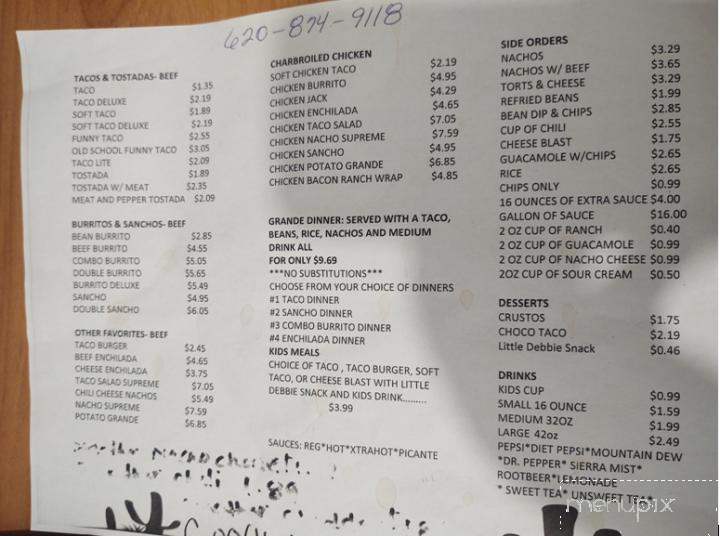 620-874-9118
TACOS & TOSTADAS- BEEF
TACO $1.35
TACO DELUXE $2.19
SOFT TACO $1.89
SOFT TACO DELUXE $2.19
FUNNY TACO $2.55
OLD SCHOOL FUNNY TACO $3.05
TACO LITE $2.09
TOSTADA $1.89
TOSTADA W/ MEAT $2.35
MEAT AND PEPPER TOSTADA $2.09
BURRITOS & SANCHOS- BEEF
BEAN BURRITO $2.85
BEEF BURRITO $4.55
COMBO BURRITO $5.05
DOUBLE BURRITO $5.65
BURRITO DELUXE $5.49
SANCHO $4.95
DOUBLE SANCHO $6.05
OTHER FAVORITES- BEEF
TACO BURGER $2.45
BEEF ENCHILADA $4.65
CHEESE ENCHILADA $3.75
TACO SALAD SUPREME $7.05
CHILI CHEESE NACHOS $5.49
NACHO SUPREME $7.59
POTATO GRANDE $6.85
CHARBROILED CHICKEN
SOFT CHICKEN TACO $2.19
CHICKEN BURRITO $4.95
CHICKEN JACK $4.29
CHICKEN ENCHILADA $4.65
CHICKEN TACO SALAD $7.05
CHICKEN NACHO SUPREME $7.59
CHICKEN SANCHO $4.95
CHICKEN POTATO GRANDE $6.85
CHICKEN BACON RANCH WRAP $4.85
GRANDE DINNER: SERVED WITH A TACO,
BEANS, RICE, NACHOS AND MEDIUM
DRINK ALL
FOR ONLY $9.69
***NO SUBSTITUTIONS***
CHOOSE FROM YOUR CHOICE OF DINNERS
#1 TACO DINNER
#2 SANCHO DINNER
#3 COMBO BURRITO DINNER
#4 ENCHILADA DINNER
KIDS MEALS
CHOICE OF TACO , TACO BURGER, SOFT
TACO, OR CHEESE BLAST WITH LITTLE
DEBBIE SNACK AND KIDS DRINK.........
$3.99
SAUCES: REG*HOT*XTRAHOT*PICANTE
SIDE ORDERS
NACHOS $3.29
NACHOS W/ BEEF $3.65
TORTS & CHEESE $3.29
REFRIED BEANS $1.99
BEAN DIP & CHIPS $2.85
CUP OF CHILI $2.55
CHEESE BLAST $1.75
GUACAMOLE W/CHIPS $2.65
RICE $2.65
CHIPS ONLY $0.99
16 OUNCES OF EXTRA SAUCE $4.00
GALLON OF SAUCE $16.00
2 OZ CUP OF RANCH $0.40
2 OZ CUP OF GUACAMOLE $0.99
2 OZ CUP OF NACHO CHEESE $0.99
2OZ CUP OF SOUR CREAM $0.50
DESSERTS
CRUSTOS $1.75
CHOCO TACO $2.19
Little Debbie Snack $0.46
DRINKS
KIDS CUP $0.99
SMALL 16 OUNCE $1.59
MEDIUM 32OZ $1.99
LARGE 42oz $2.49
PEPSI*DIET PEPSI*MOUNTAIN DEW
*DR. PEPPER* SIERRA MIST*
ROOTBEER*LEMONADE
* SWEET TEA* UNSWEET TEA**
menupix